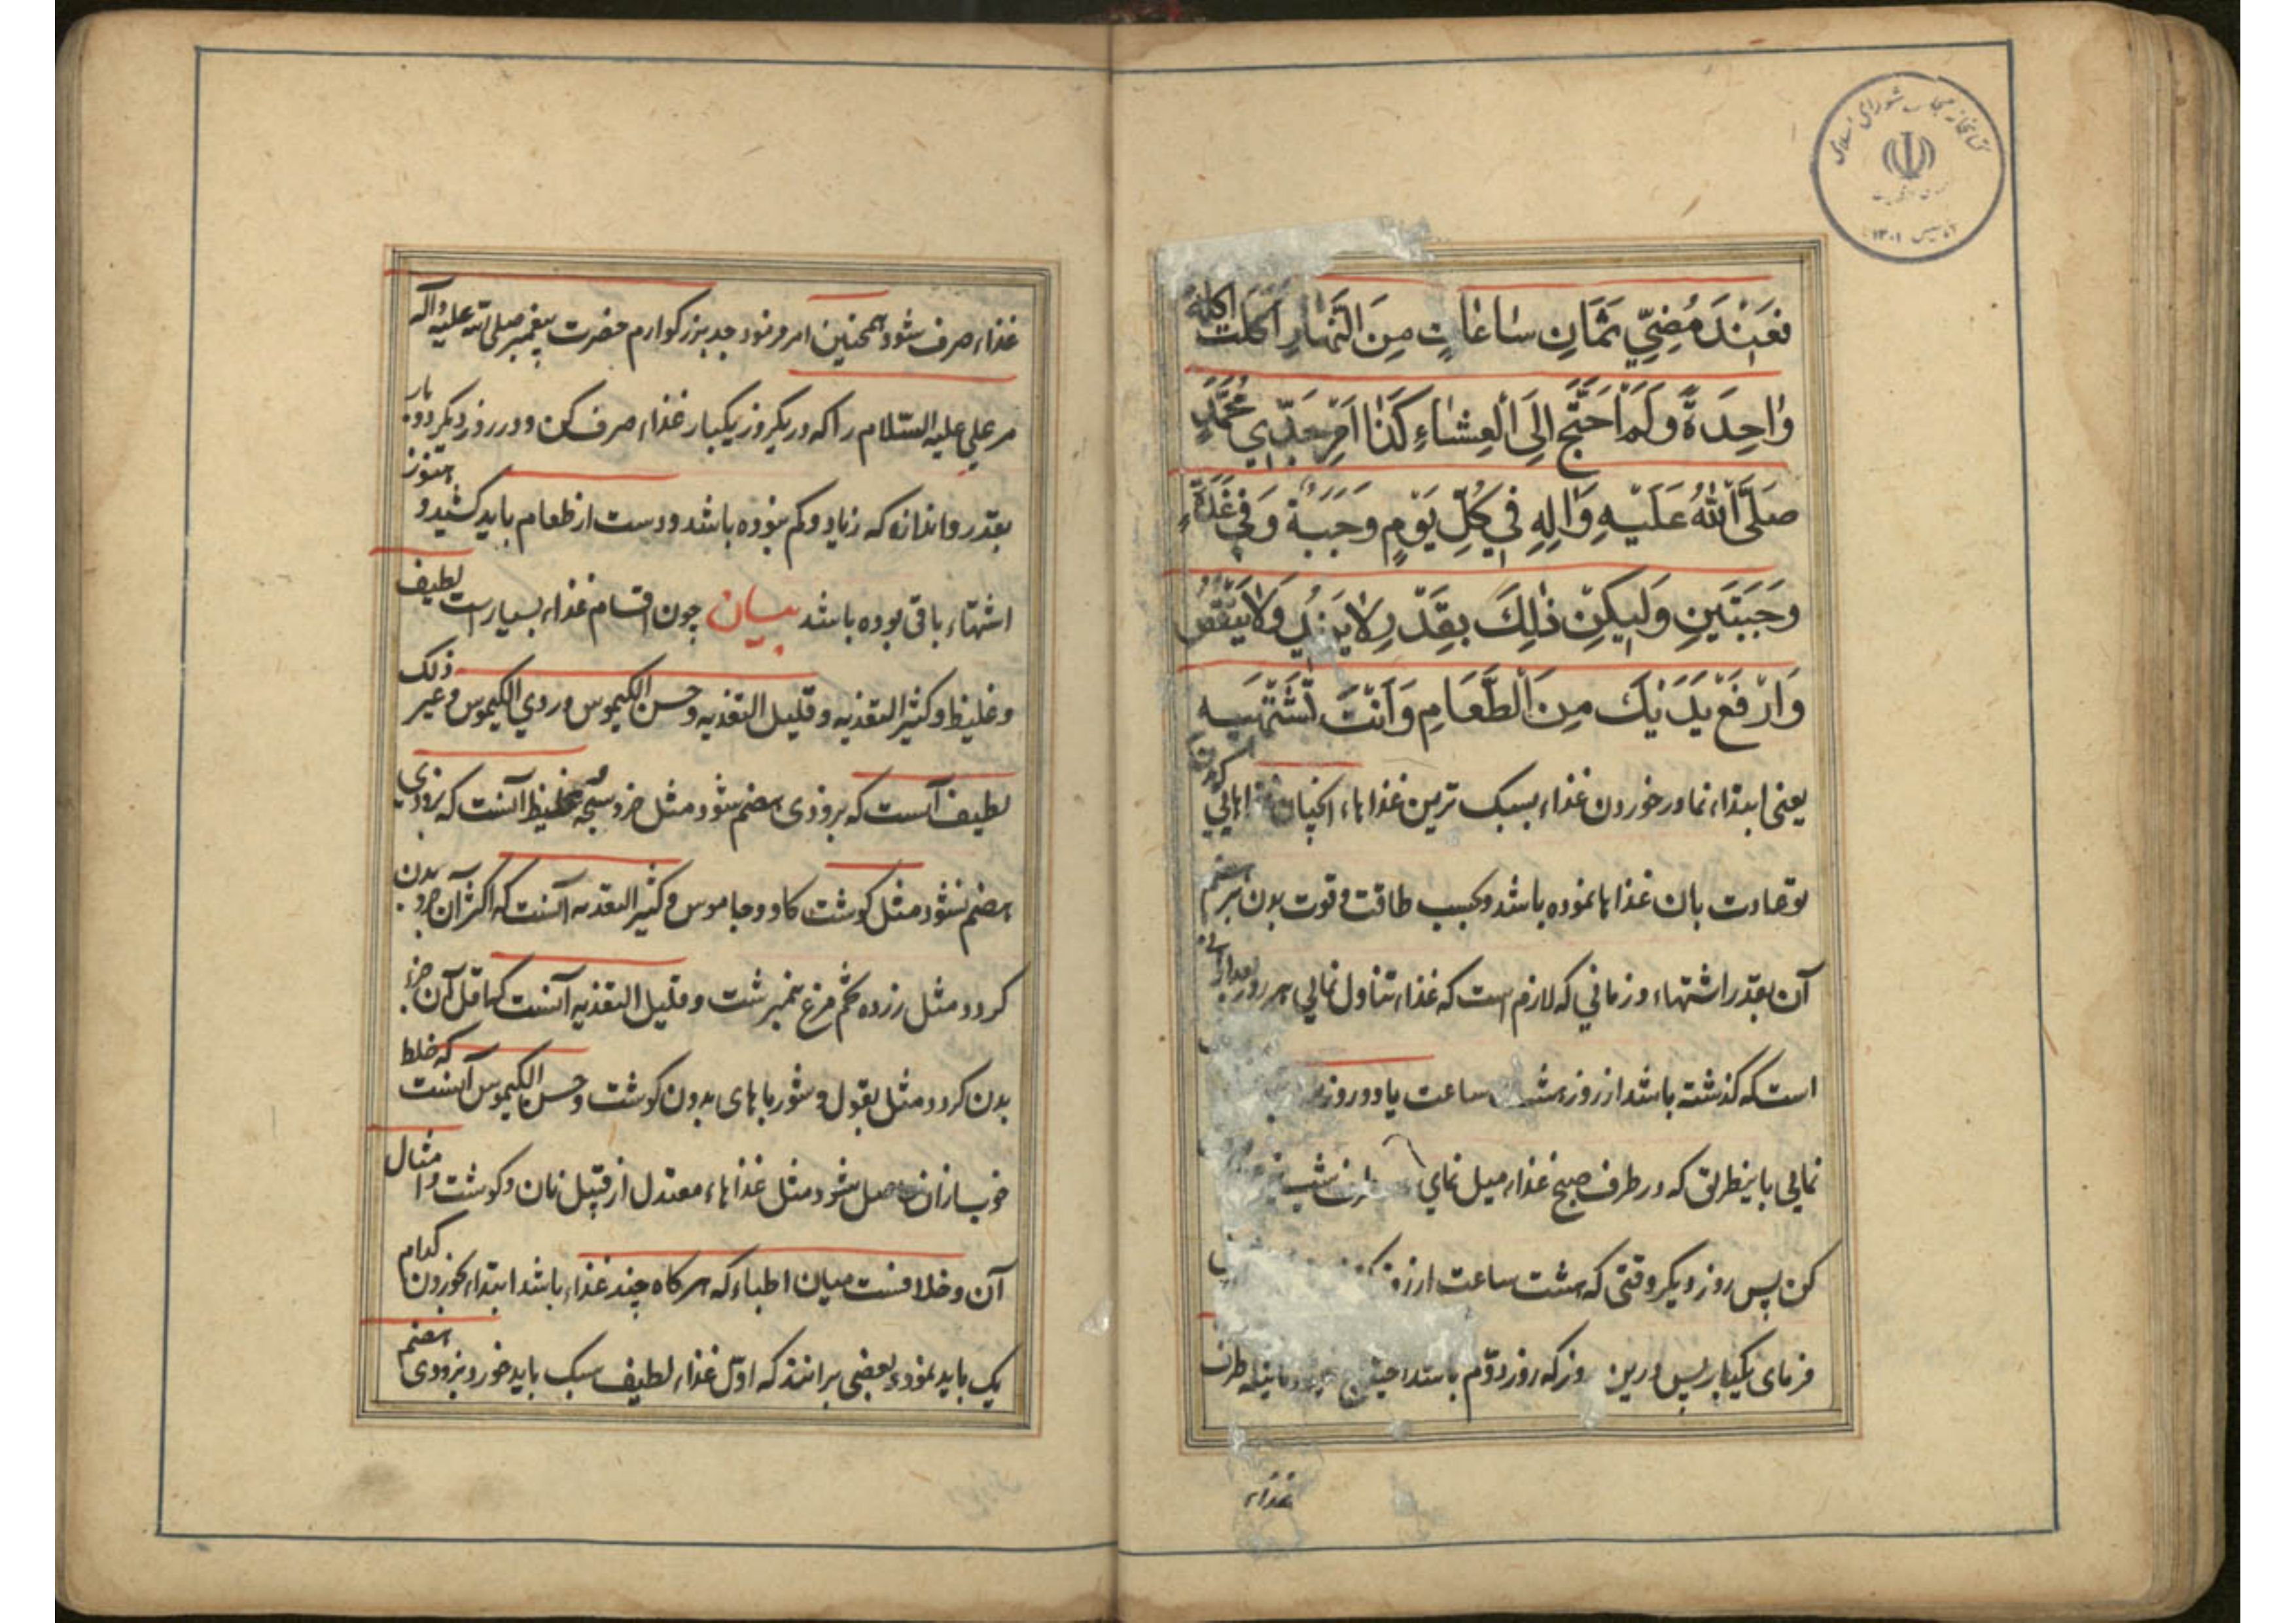 کتابخانه مجلس شورای اسلامی
تأسیس ۱۳۰۱
فَعِنْدَ مُضِيِّ ثَمَانِ سَاعَاتٍ مِنَ النَّهَارِ اَكَلْتَ اكلة
وَاحِدَةً وَلَمْ اَحْتَجْ اِلَى الْعِشَاءِ كَذَا اَمَرَ جَدِّي مُحَمَّدٍ
صَلَّى اللهُ عَلَيْهِ وَالِهِ فِي كُلِّ يَوْمٍ وَجَبَةً وَفِي غَدَاةٍ
وَجَبَتَيْنِ وَلِيَكُنْ ذٰلِكَ بِقَدَرٍ لا يَزِيدُ وَلا يَنْقُصُ
وَارْفَعْ يَدَيْكَ مِنَ الطَّعَامِ وَاَنْتَ تَشْتَهِيهِ
یعنی ابتداء نما در خوردن غذاء بسبک ترین غذاها، آنچنان غذاهایی که بدن
تو عادت بان غذاها نموده باشد و بحسب طاقت و قوت بدن بر هضم
آن بقدر اشتهاء و زمانی که لازم است که غذاء تناول نمایی هر روز
است که گذشته باشد از روز هشت ساعت یا دو روز
نمایی باینطریق که در طرف صبح غذاء میل نمای طرف شب
کن پس روز دیگر وقتی که هشت ساعت از روز
فرمای یکبار پس درین روز که روز دوّم باشد احتیاج طرف
غذاء
غذاء صرف شود همچنین امر نمود جد بزرگوارم حضرت پیغمبر صلی الله علیه واله
مر علی علیه السّلام را که در یکروز یکبار غذاء صرف کن و در روز دیگر دو بار
بقدر و اندازه که زیاد و کم نبوده باشد و دست از طعام باید کشید و هنوز
اشتهاء باقی بوده باشد بیان چون اقسام غذاء بسیار است لطیف
و غلیظ و کثیر التغذیه و قلیل التغذیه و حسن الکیموس و ردي الکیموس و غیر ذلک
لطیف آنست که بزودی هضم شود مثل خروسبچه غلیظ آنست که بزودي
هضم نشود مثل گوشت گاو و جاموس و کثیر التغذیه آنست که اکثر آن جزو بدن
گردد مثل زرده تخم مرغ نیمبرشت و قلیل التغذیه آنست که اقل آن جزء
بدن گردد مثل بقول و شورباهای بدون گوشت و حسن الکیموس آنست که خلط
خوب از ان حاصل شود مثل غذاهاء معتدل از قبیل نان و گوشت و امثال
آن و خلافست میان اطباء که هرگاه چند غذاء باشد ابتداء بخوردن کدام
یک باید نمود بعضی برانند که اوّل غذاء لطیف سبک باید خورد و بزودی هضم